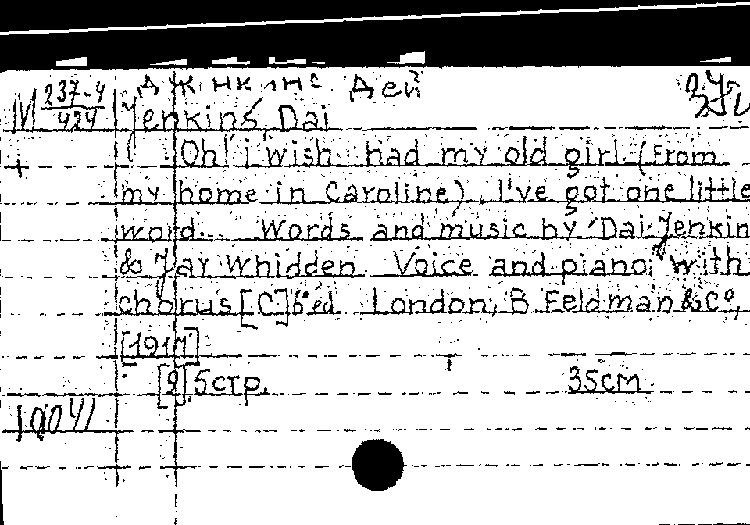 Дженкинс Дей
М 237-4/424
Jenkins, Dai
Oh! i wish had my old girl (From
my home in Caroline). I've got one little
word... Words and music by Dai Jenkin
& Jay Whidden Voice and piano with
chorus [C] 6° ed London, B. Feldman & C°,
[1917]
[2], 5 стр. 35 cm